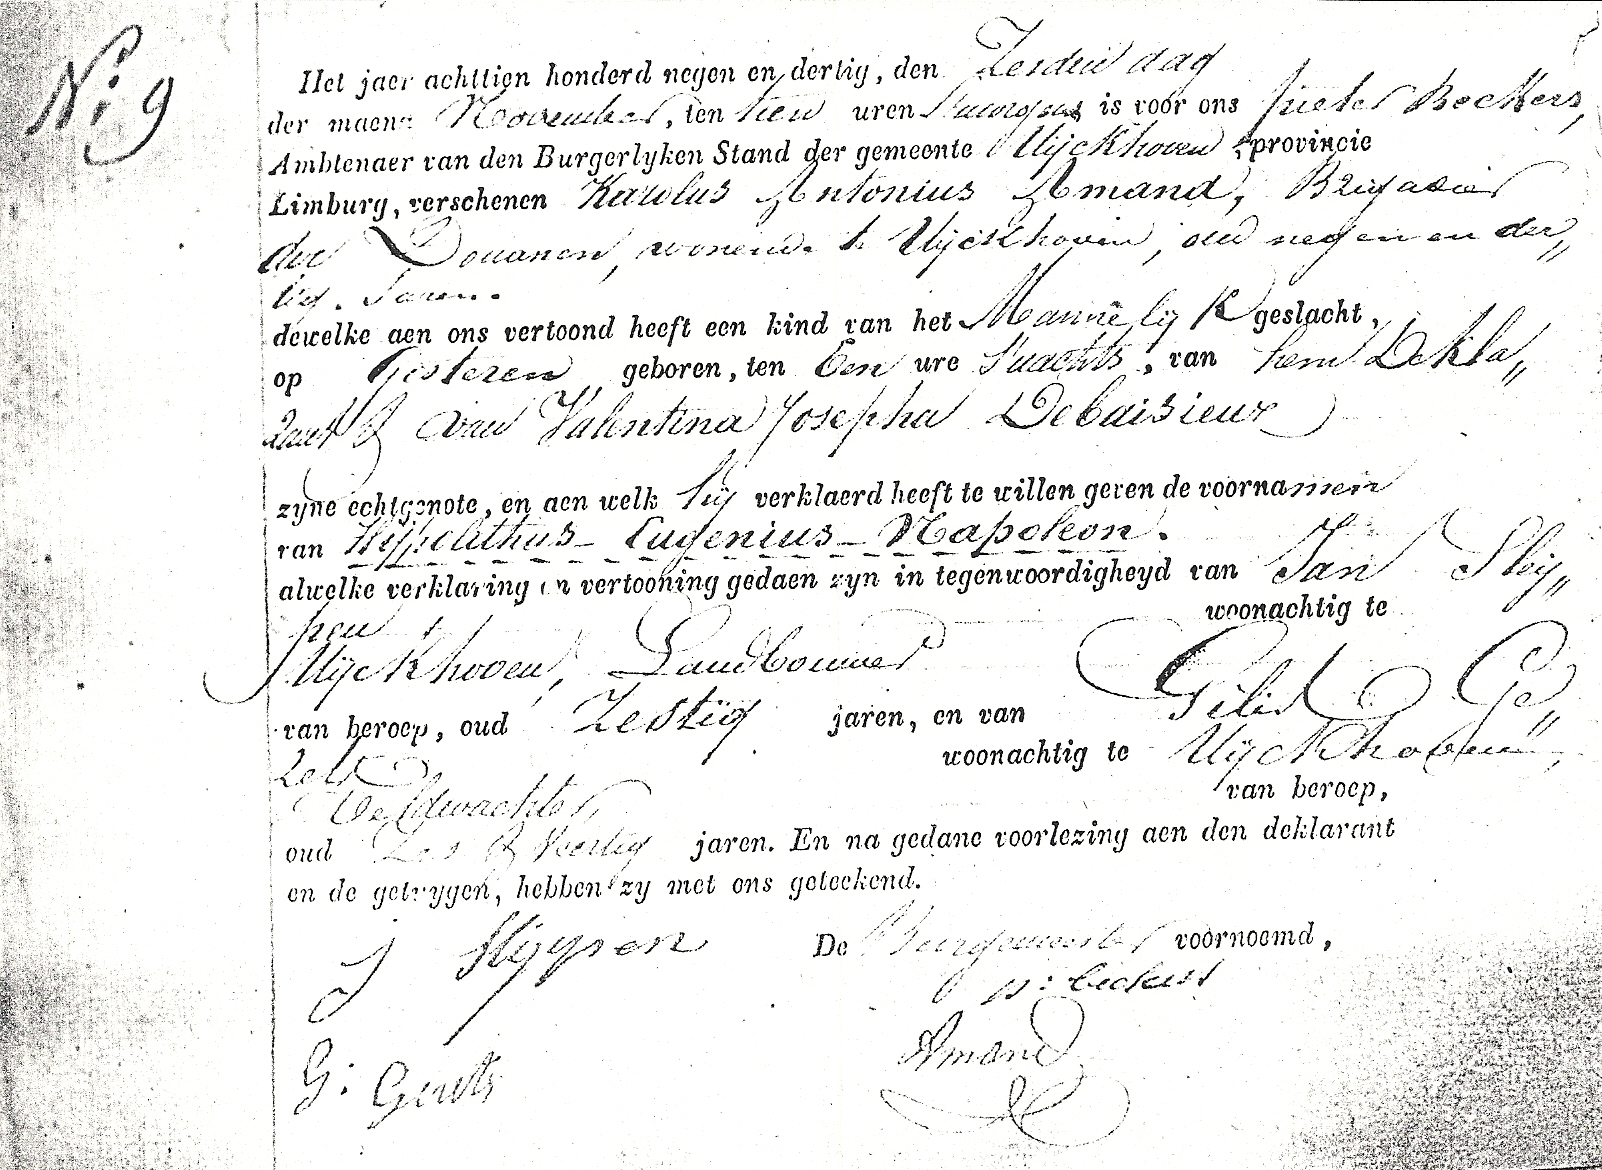 N: 9
Het jaer achttien honderd negen en dertig, den Zesden dag
der maend November, ten tien uren s'morgens is voor ons Pieter Beckers,
Ambtenaer van den Burgerlyken Stand der gemeente Uÿckhoven provincie
Limburg, verschenen Karolus Antonius Amand, Brigadier
der Douanen, wonende te Uÿckhoven, oud negen en der„
tig Jaren.
dewelke aen ons vertoond heeft een kind van het Mannelyk geslacht,
op Gisteren geboren, ten Een ure s'nachts, van hem Dekla„
rant & van Valentina Josepha Debaisieux
zyne echtgenote, en aen welk hÿ verklaerd heeft te willen geven de voornamen
van Hÿppolithus - Eugenius - Napoleon.
alwelke verklaring en vertooning gedaen zyn in tegenwoordigheyd van Jan Slÿ„
pen woonachtig te
Uÿckhoven, Landbouwer
van beroep, oud Zestig jaren, en van Gilis Ge„
woonachtig te Uÿckhoven,
Veldwachter, van beroep,
oud Zes & Veertig jaren. En na gedane voorlezing aen den deklarant
en de getuygen, hebben zy met ons geteekend.
J Slÿpen De Burgemeester voornoemd,
p: beckers
Amand
G: Geurts